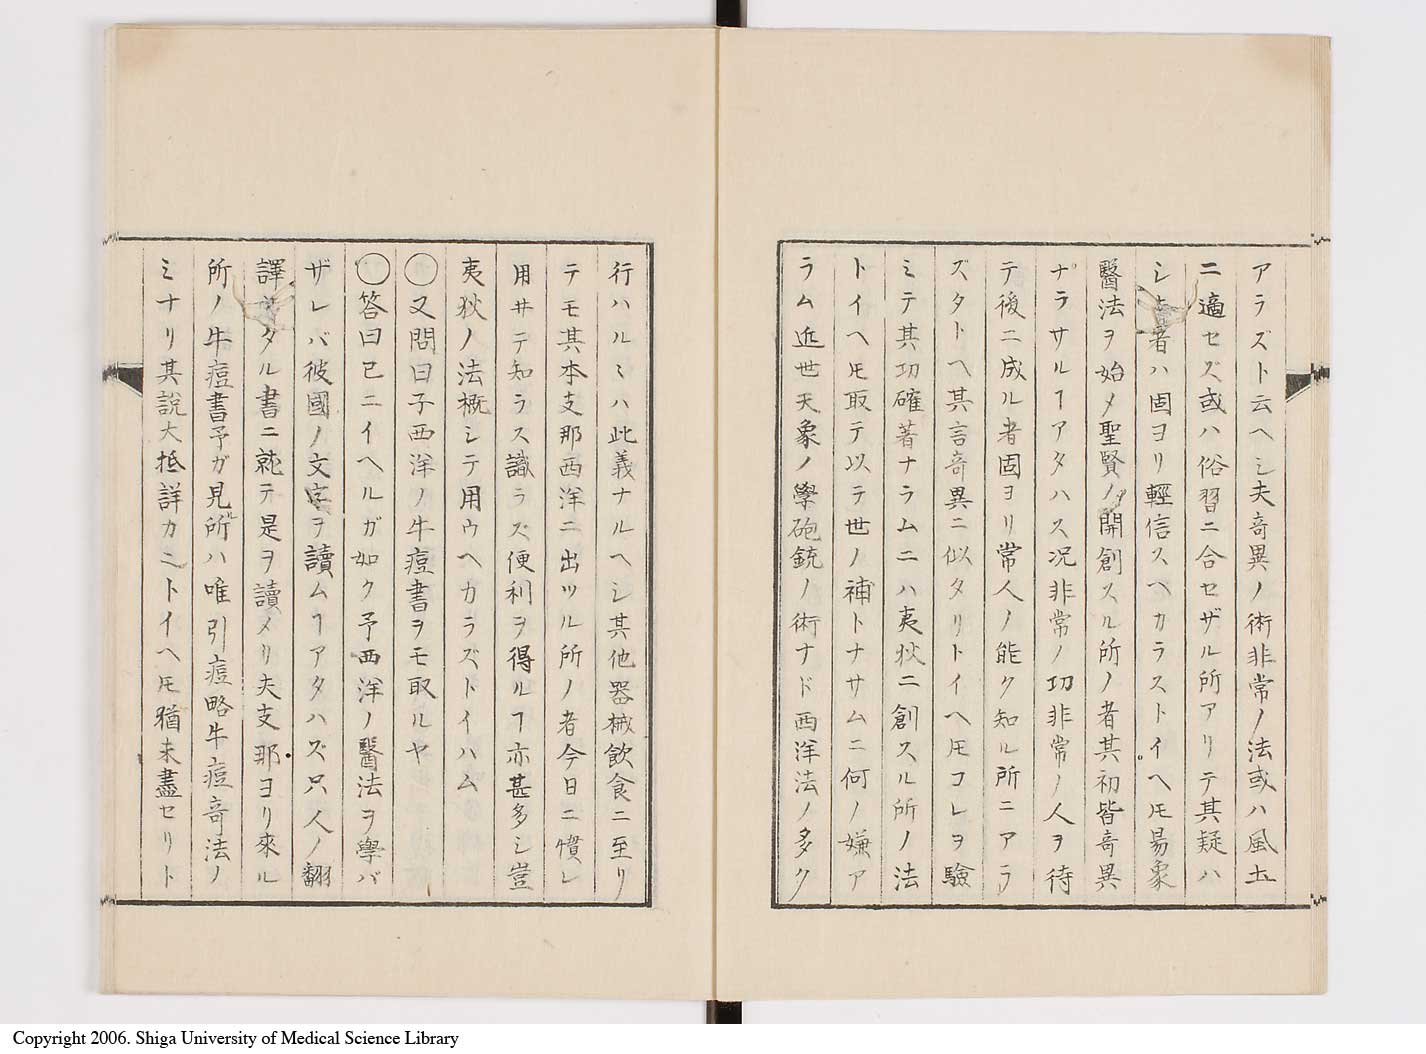 アラズト云ヘシ夫奇異ノ術非常ノ法或ハ風土
ニ適セズ或ハ俗習ニ合セザル所アリテ其疑ハ
シキ者ハ固ヨリ輕信スヘカラストイヘ𪜈易象
醫法ヲ始メ聖賢ノ開創スル所ノ者其初皆奇異
ナラサルヿアタハス況非常ノ功非常ノ人ヲ待
テ後ニ成ル者固ヨリ常人ノ能ク知ル所ニアラ
ズタトヘ其言奇異ニ似タリトイヘ𪜈コレヲ驗
ミテ其功確著ナラムニハ夷狄ニ創スル所ノ法
トイヘ𪜈取テ以テ世ノ補トナサムニ何ノ嫌ア
ラム近世天象ノ學砲銃ノ術ナド西洋法ノ多ク
行ハルヽハ此義ナルヘシ其他器械飲食ニ至リ
テモ其本支那西洋ニ出ツル所ノ者今日ニ慣レ
用井テ知ラス識ラズ便利ヲ得ルヿ亦甚多シ豈
夷狄ノ法概シテ用ウヘカラズトイハム
○又問曰子西洋ノ牛痘書ヲモ取ルヤ
○答曰已ニイヘルガ如ク予西洋ノ醫法ヲ學バ
ザレバ彼國ノ文字ヲ讀ムヿアタハズ只人ノ翻
譯タル書ニ就テ是ヲ讀メリ夫支那ヨリ來ル
所ノ牛痘書予ガ見ル所ハ唯引痘略牛痘奇法ノ
ミナリ其説大抵詳カニトイヘ𪜈猶未盡セリト